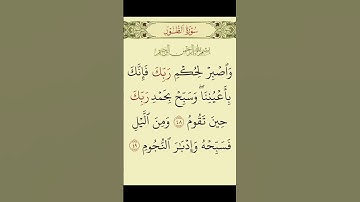 سُورَةُ الطُّورِ
بِسْمِ اللَّهِ الرَّحْمَٰنِ الرَّحِيمِ
وَٱصۡبِرۡ لِحُكۡمِ رَبِّكَ فَإِنَّكَ
بِأَعۡيُنِنَاۖ وَسَبِّحۡ بِحَمۡدِ رَبِّكَ
حِينَ تَقُومُ ٤٨ وَمِنَ ٱلَّيۡلِ
فَسَبِّحۡهُ وَإِدۡبَٰرَ ٱلنُّجُومِ ٤٩